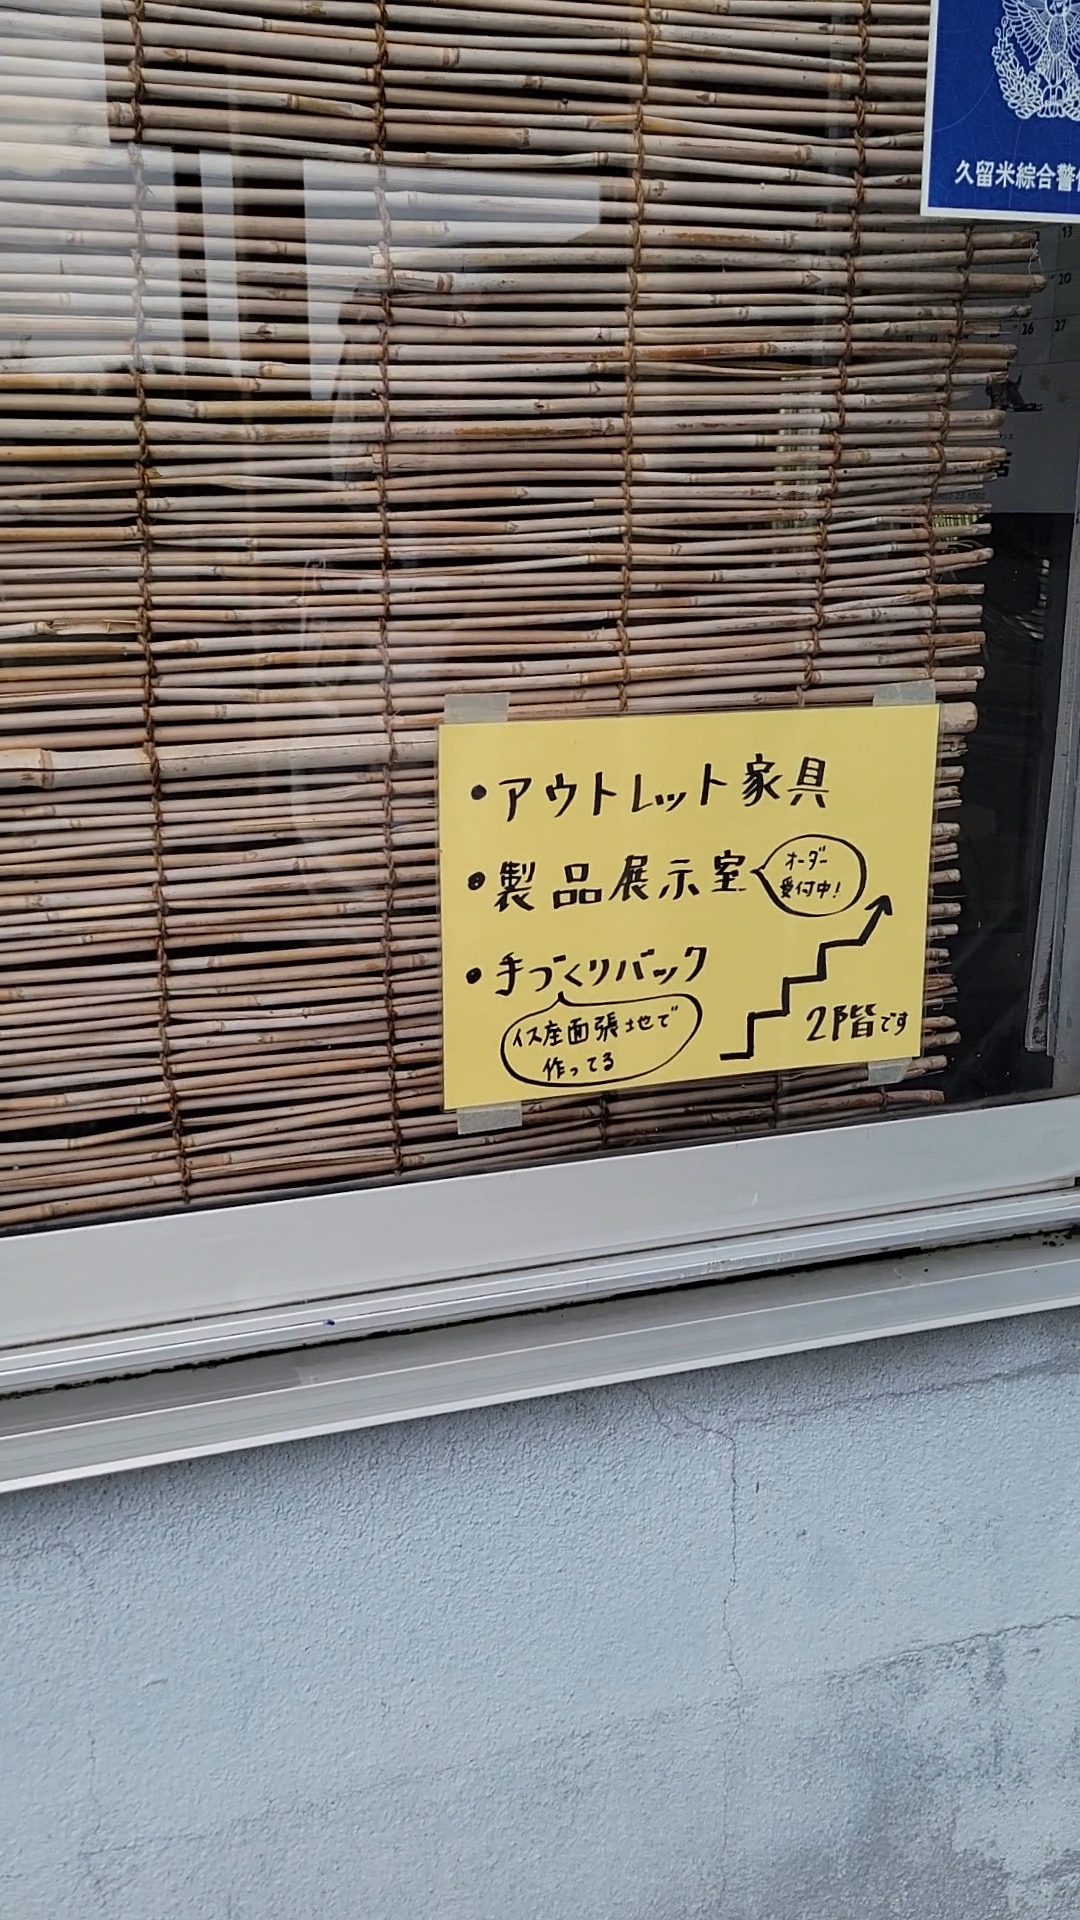 久留米綜合警
13
20
26 27
・アウトレット家具
・製品展示室
オーダー
受付中!
・手づくりバック
イス座面張地で
作ってる
2階です